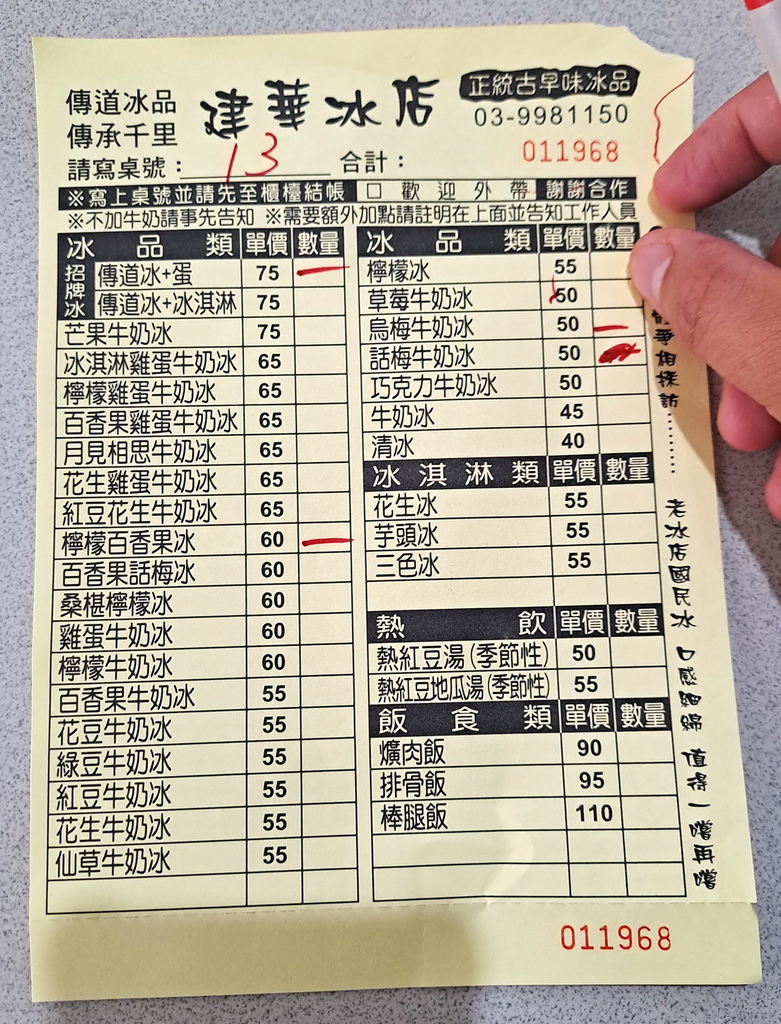 傳道冰品
傳承千里
建華冰店
正統古早味冰品
03-9981150
請寫桌號：13 合計：
011968
※寫上桌號並請先至櫃檯結帳 □ 歡迎外帶 謝謝合作
※不加牛奶請事先告知 ※需要額外加點請註明在上面並告知工作人員
冰品類 單價 數量
招牌冰
傳道冰+蛋 75 一
傳道冰+冰淇淋 75
芒果牛奶冰 75
冰淇淋雞蛋牛奶冰 65
檸檬雞蛋牛奶冰 65
百香果雞蛋牛奶冰 65
月見相思牛奶冰 65
花生雞蛋牛奶冰 65
紅豆花生牛奶冰 65
檸檬百香果冰 60 一
百香果話梅冰 60
桑椹檸檬冰 60
雞蛋牛奶冰 60
檸檬牛奶冰 60
百香果牛奶冰 55
花豆牛奶冰 55
綠豆牛奶冰 55
紅豆牛奶冰 55
花生牛奶冰 55
仙草牛奶冰 55
冰品類 單價 數量
檸檬冰 55
草莓牛奶冰 50
烏梅牛奶冰 50 一
話梅牛奶冰 50
巧克力牛奶冰 50
牛奶冰 45
清冰 40
冰淇淋類 單價 數量
花生冰 55
芋頭冰 55
三色冰 55
熱飲 單價 數量
熱紅豆湯(季節性) 50
熱紅豆地瓜湯(季節性) 55
飯食類 單價 數量
爌肉飯 90
排骨飯 95
棒腿飯 110
爭相採訪………
老冰店國民冰 口感細綿 值得一嚐再嚐
011968